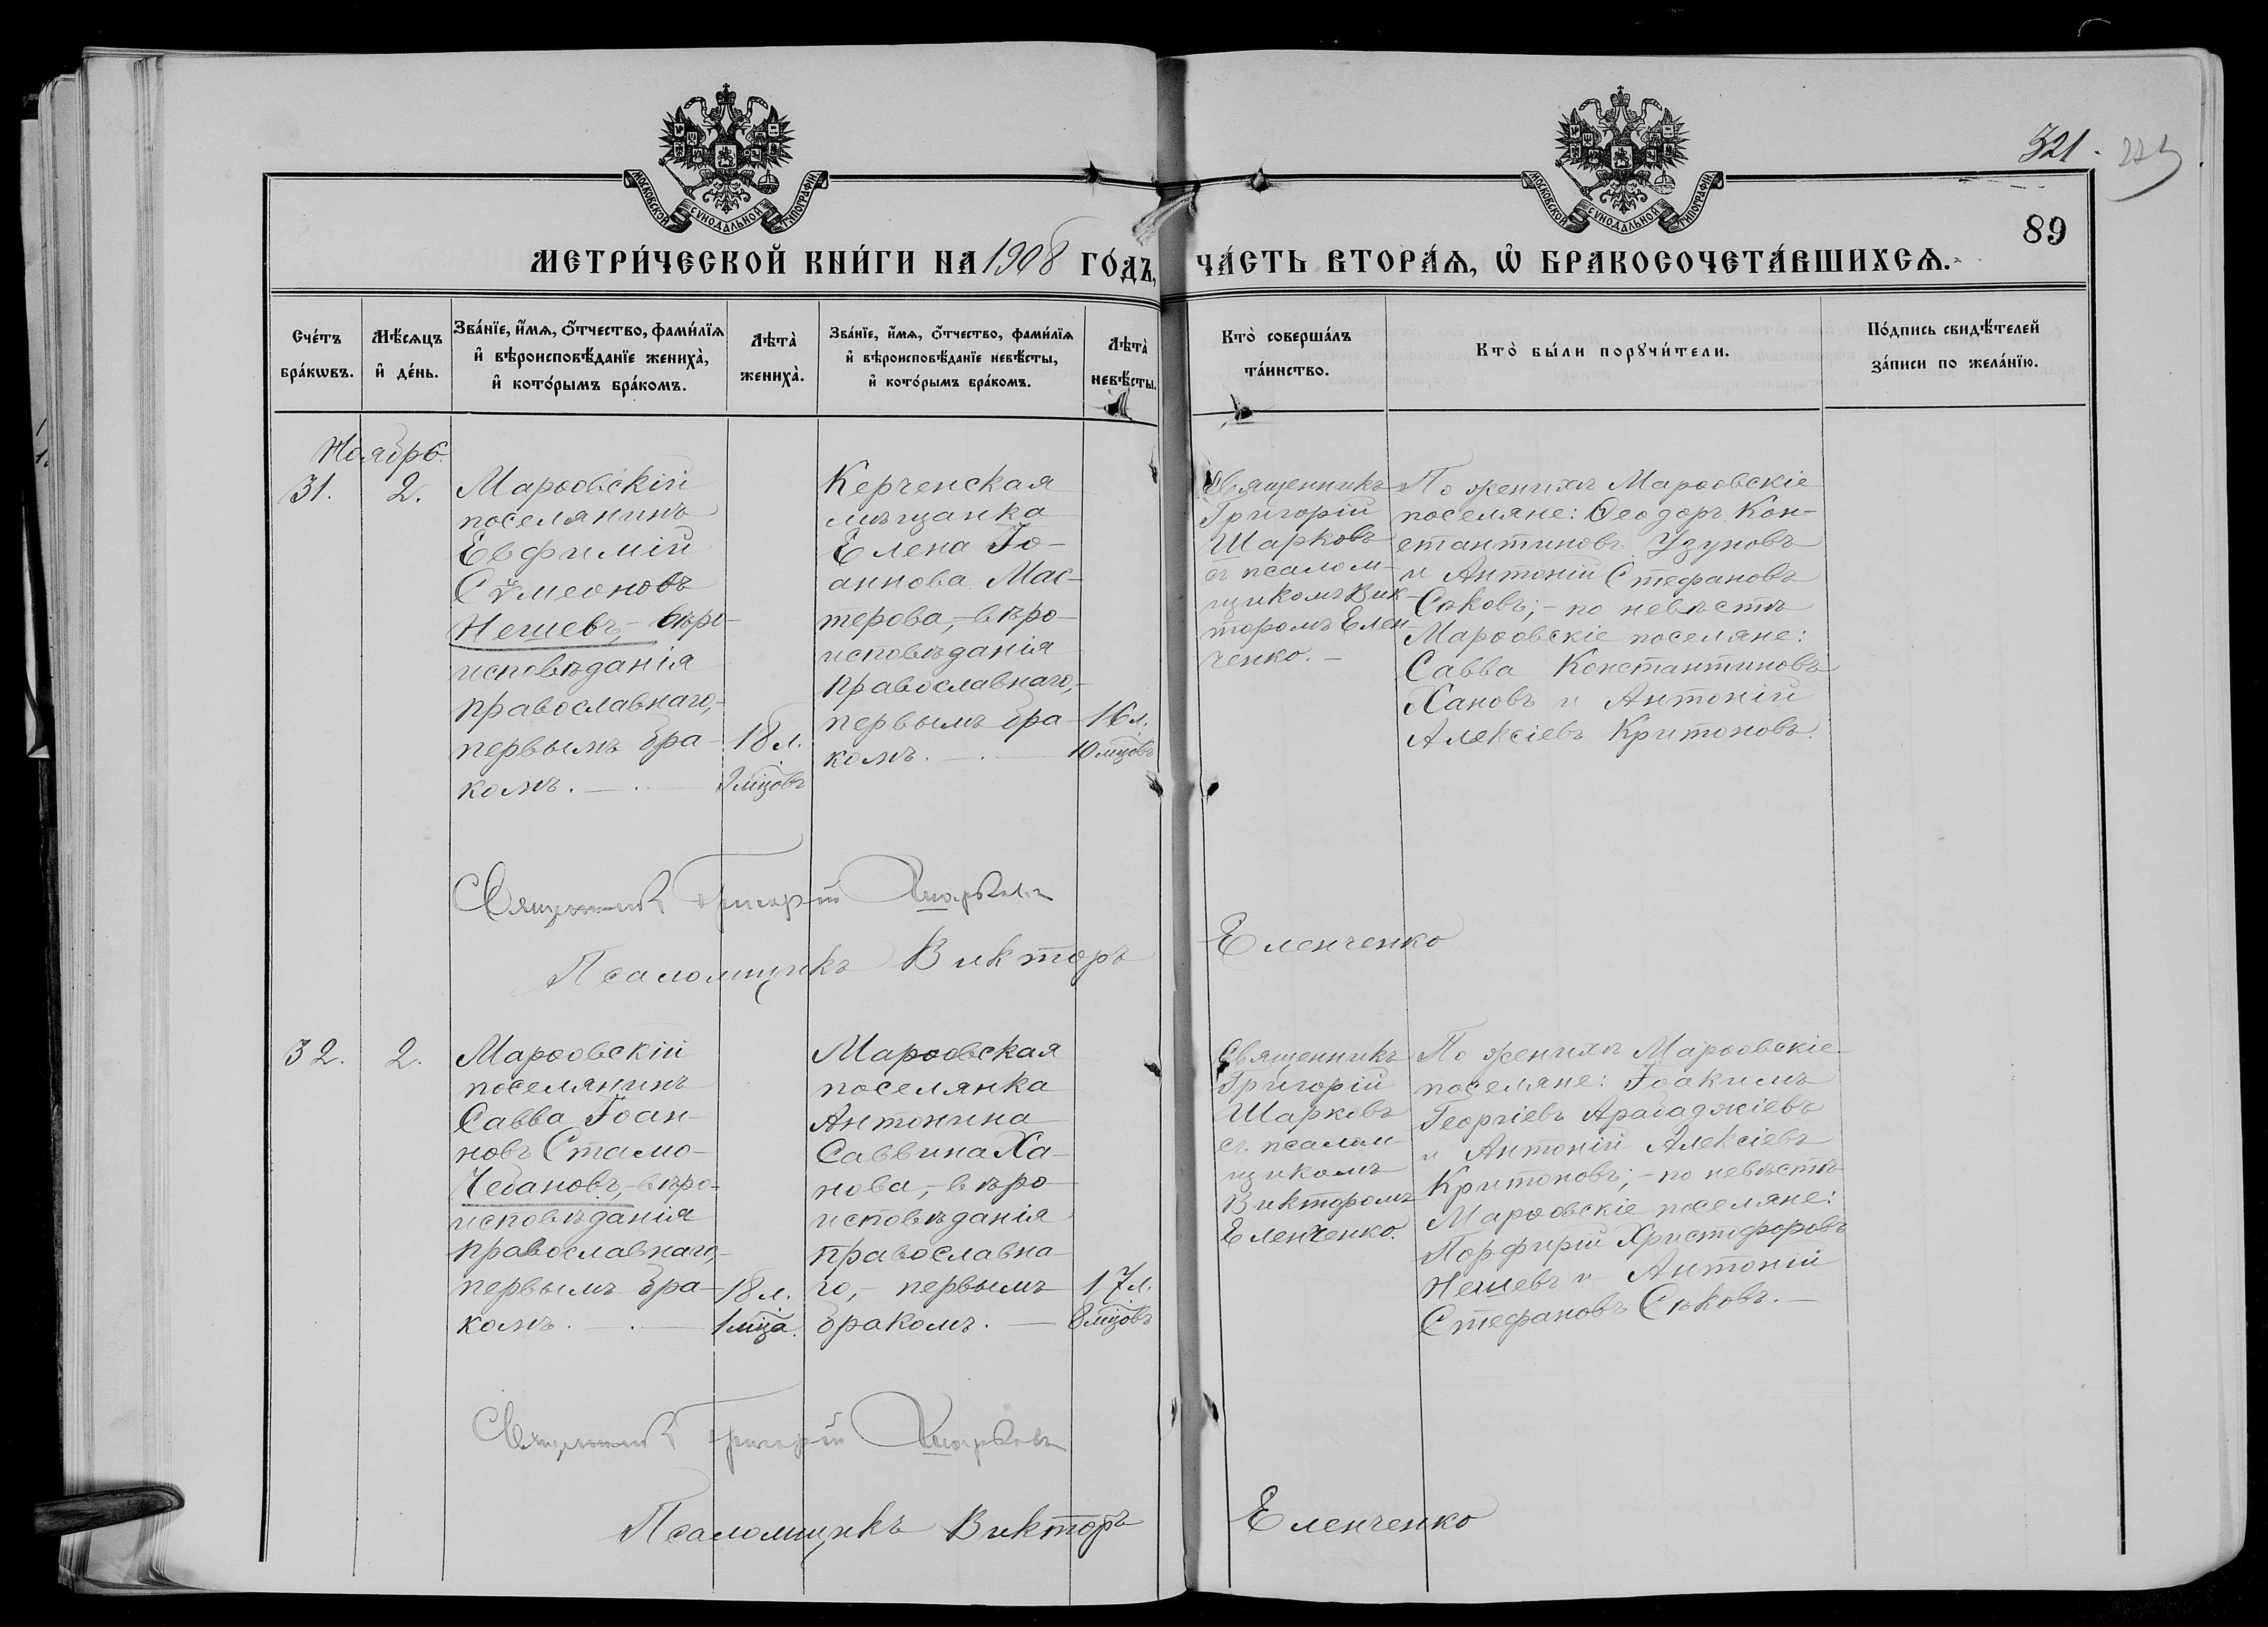 МОСКОВСКОЙ СѴНОДАЛЬНОЙ ТИПОГРАФІИ
МОСКОВСКОЙ СѴНОДАЛЬНОЙ ТИПОГРАФІИ
321.
89
МЕТРИ́ЧЕСКОЙ КНИ́ГИ НА 1908 ГО́ДЪ, ЧА́СТЬ ВТОРА́Ѧ, Ѡ҆ БРАКОСОЧЕТА́ВШИХСѦ.
Сче́тъ
бра́кѡвъ.
Мѣ́сѧцъ
и҆ де́нь.
Зва́нїе, и҆́мѧ, ѻ҆́тчество, фами́лїѧ
и҆ вѣроисповѣ́данїе жениха̀,
и҆ кото́рымъ бра́комъ.
Лѣта̀
жениха̀.
Зва́нїе, и҆́мѧ, ѻ҆́тчество, фами́лїѧ
и҆ вѣроисповѣ́данїе невѣ́сты,
и҆ кото́рымъ бра́комъ.
Лѣта̀
невѣ́сты.
Кто̀ соверша́лъ
та́инство.
Кто̀ бы́ли порꙋчи́тели.
По́дпись свидѣ́телей
за́писи по жела́нїю.
Ноябрь.
31.
2.
Марѳовскій
поселянинъ
Евфимій
Сѵмеоновъ
Нешевъ,- вѣро-
исповѣданія
православнаго,-
первымъ бра-
комъ. — . —
18 л.
9 мцовъ
Керченская
мѣщанка
Елена Іо-
аннова Мас-
терова,- вѣро-
исповѣданія
православнаго,-
первымъ бра-
комъ. — . —
16 л.
10 мцовъ
Священникъ
Григорій
Шарковъ
съ псалом-
щикомъ Вик-
торомъ Елен-
ченко. —
По женихѣ Марѳовскіе
поселяне: Ѳеодоръ Кон-
стантиновъ Узуновъ
и Антоній Стефановъ
Сѣковъ; - по невѣстѣ
Марѳовскіе поселяне:
Савва Константиновъ
Хановъ и Антоній
Алексіевъ Критоновъ.
Священникъ Григорій Шарковъ
Псаломщикъ Викторъ Еленченко
32.
2.
Марѳовскій
поселянинъ
Савва Іоан-
новъ Стамо-
Чебановъ,- вѣро-
исповѣданія
православнаго,-
первымъ бра-
комъ. — . —
18 л.
1 мца.
Марѳовская
поселянка
Антонина
Саввина Ха-
нова,- вѣро-
исповѣданія
православна-
го,- первымъ
бракомъ. —
17 л.
8 мцовъ
Священникъ
Григорій
Шарковъ
съ псалом-
щикомъ
Викторомъ
Еленченко.
По женихѣ Марѳовскіе
поселяне: Іоакимъ
Георгіевъ Арабаджіевъ
и Антоній Алексіевъ
Критоновъ; - по невѣстѣ
Марѳовскіе поселяне:
Порфирій Христофоровъ
Нешевъ и Антоній
Стефановъ Сѣковъ. —
Священникъ Григорій Шарковъ
Псаломщикъ Викторъ Еленченко